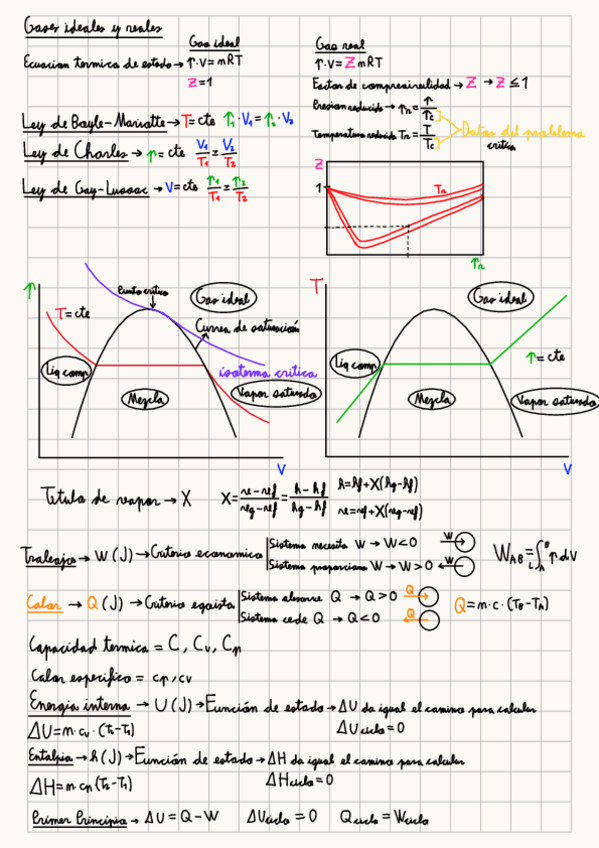 Gases ideales y reales
Gas ideal
Gas real
Ecuacion termica de estado → P·V = mRT
P·V = Z mRT
Z=1
Factor de compresireilidad → Z → Z ≤ 1
Presion reducida → Pr = P/Pc
Ley de Boyle-Mariotte → T=cte P1·V1 = P2·V2
Temperatura reducida Tr = T/Tc
Datos del problema
critica
Ley de Charles → P = cte V1/T1 = V2/T2
Ley de Gay-Lussac → V=cte P1/T1 = P2/T2
Z
1
Tr
Pr
P
Punto critico
Gas ideal
T=cte
Curva de saturación
Liq comp
isoterma critica
Mezcla
Vapor saturado
V
T
Gas ideal
Liq comp
P=cte
Mezcla
Vapor saturado
V
Titulo de vapor → X X = (ve-vef)/(veg-vef) = (h-hf)/(hg-hf)
h=hf+X(hg-hf)
ve=vef+X(veg-vef)
Trabajo → W (J) → Criterio economico
Sistema necesita W → W<0 W
Sistema proporciona W → W>0 W
W_AB = ∫_A^B P dV
Calor → Q (J) → Criterio egoista
Sistema absorve Q → Q>0 Q
Sistema cede Q → Q<0 Q
Q=m·c·(TB-TA)
Capacidad termica = C, Cv, Cp
Calor especifico = cp, cv
Energia interna → U (J) → Función de estado → ΔU da igual el camino para calcular
ΔU=m·cv·(T2-T1)
ΔU ciclo = 0
Entalpia → h (J) → Función de estado → ΔH da igual el camino para calcular
ΔH=m·cp(T2-T1)
ΔH ciclo = 0
Primer Principio → ΔU = Q - W ΔU ciclo = 0 Q ciclo = W ciclo